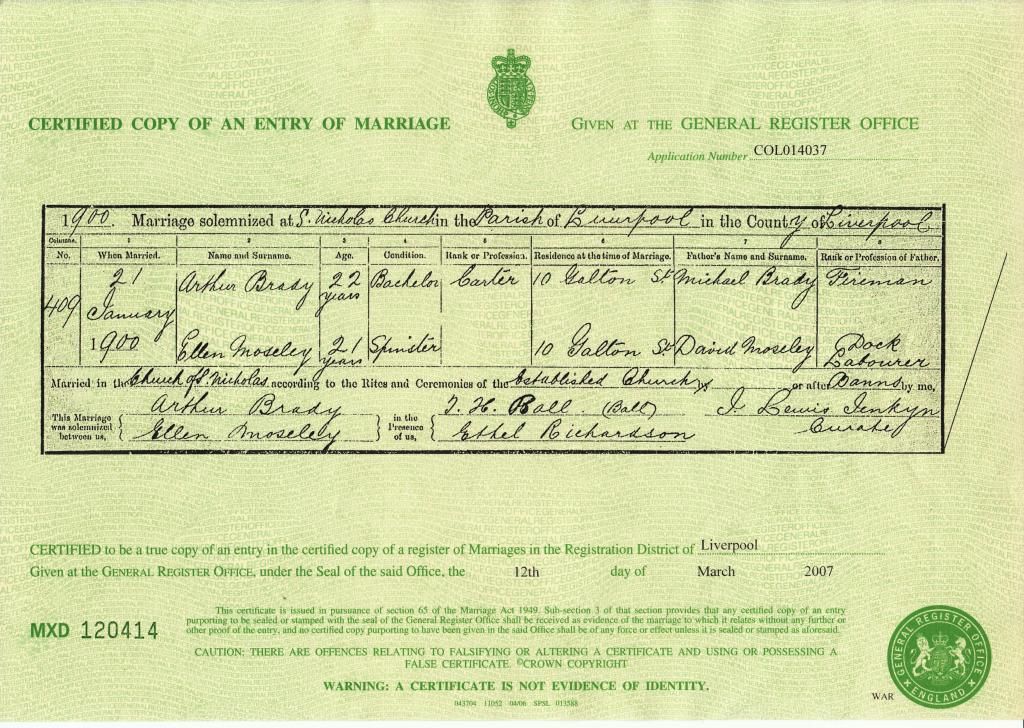 CERTIFIED COPY OF AN ENTRY OF MARRIAGE
GIVEN AT THE GENERAL REGISTER OFFICE
Application Number COL014037
1900. Marriage solemnized at S. Nicholas Church in the Parish of Liverpool in the County of Liverpool
Columns. 1 2 3 4 5 6 7 8
No. When Married. Name and Surname. Age. Condition. Rank or Profession. Residence at the time of Marriage. Father's Name and Surname. Rank or Profession of Father.
409 21 January 1900
Arthur Brady 22 years Bachelor Carter 10 Galton St. Michael Brady Fireman
Ellen Moseley 21 years Spinster 10 Galton St. David Moseley Dock Labourer
Married in the Church of S. Nicholas according to the Rites and Ceremonies of the Established Church or after Banns by me,
This Marriage was solemnized between us, { Arthur Brady
Ellen Moseley }
in the Presence of us, { T. H. Ball (Ball)
Ethel Richardson
J. Lewis Jenkyn
Curate
CERTIFIED to be a true copy of an entry in the certified copy of a register of Marriages in the Registration District of Liverpool
Given at the GENERAL REGISTER OFFICE, under the Seal of the said Office, the 12th day of March 2007
MXD 120414
This certificate is issued in pursuance of section 65 of the Marriage Act 1949. Sub-section 3 of that section provides that any certified copy of an entry
purporting to be sealed or stamped with the seal of the General Register Office shall be received as evidence of the marriage to which it relates without any further or
other proof of the entry, and no certified copy purporting to have been given in the said Office shall be of any force or effect unless it is sealed or stamped as aforesaid.
CAUTION: THERE ARE OFFENCES RELATING TO FALSIFYING OR ALTERING A CERTIFICATE AND USING OR POSSESSING A
FALSE CERTIFICATE. ©CROWN COPYRIGHT
WARNING: A CERTIFICATE IS NOT EVIDENCE OF IDENTITY.
043704 11052 04/06 SPSL 013588
WAR
GENERAL REGISTER OFFICE
ENGLAND